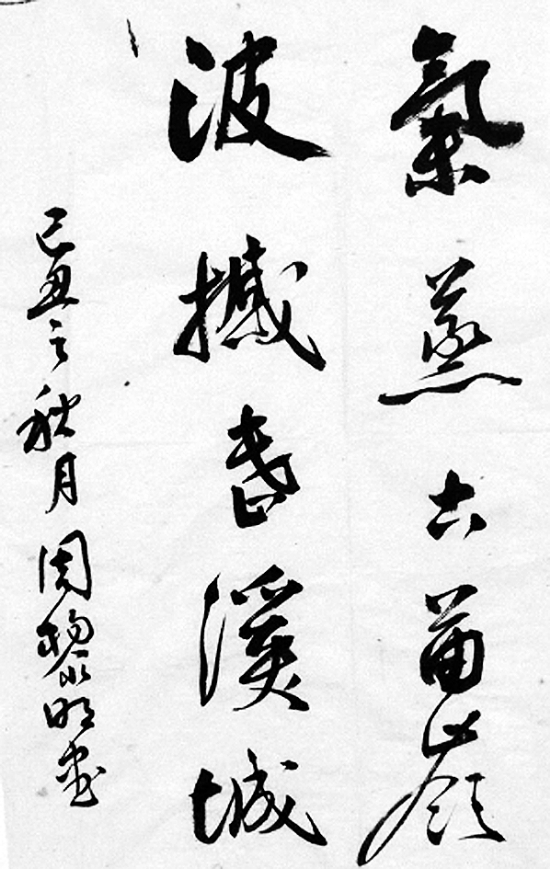 氣蒸古苗嶺
波撼武溪城
己丑之秋月周黎明書